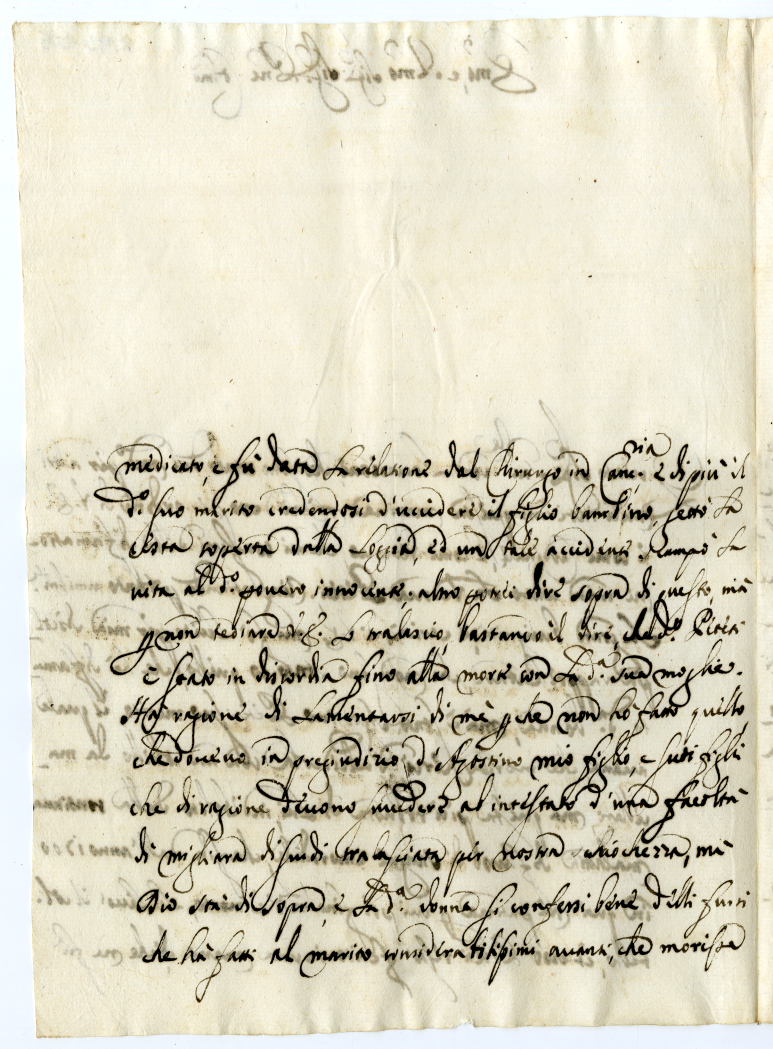 medicato, e fù data la relatione dal Chirurgo in Canc.ria e di più il
d.º suo marito credendosi d'uccidere il figlio bambino, gettò la
cesta coperta dalla Loggia, ed un tale accidente scampò la
vita al d.º povero innocente; altro potrei dire sopra di questo, mà
p non tediare V.S. lo tralascio, bastando il dire, che d.º
è stato in discordia fino alla morte con la d.ª sua moglie.
Hà ragione di lamentarsi di mè p che non hò fatto quello
che dovevo in pregiudizio d'Agostino mio figlio, e suoi figli
che di ragione devono succedere al intestato d'una facoltà
di migliara di scudi tralasciata per nostra schiochezza, mà
Dio stà di sopra, e la d.ª donna si confessi bene delli furti
che hà fatti al marito consideratitissimi avanti, che morisse